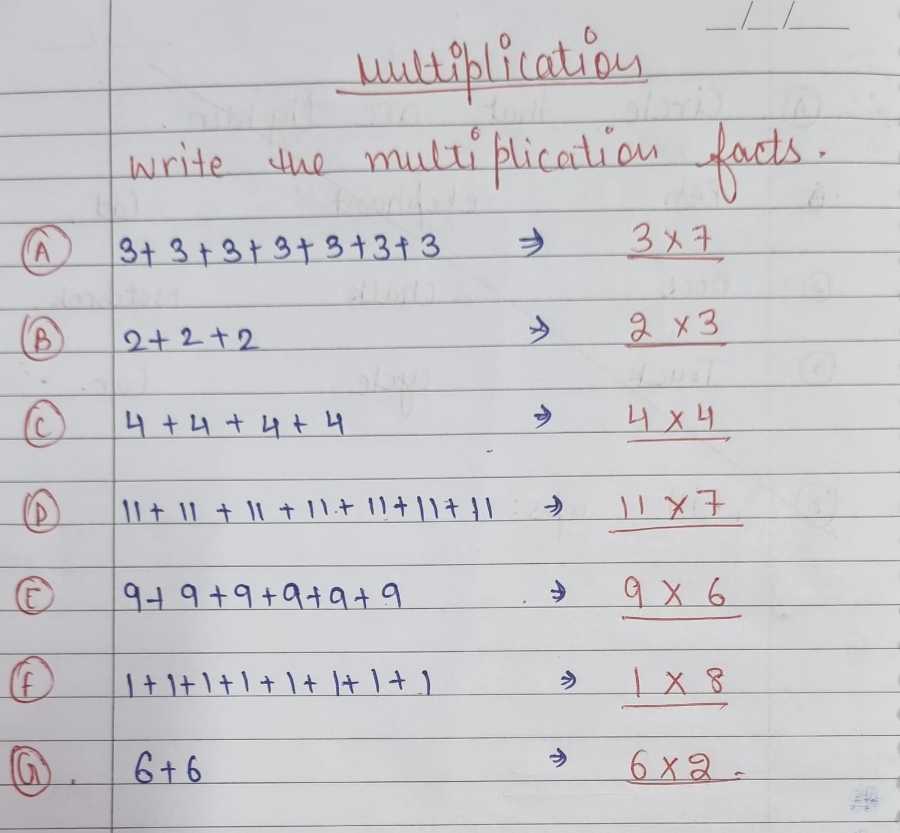 Multiplication
write the multiplication facts.
A 3+3+3+3+3+3+3 ⇒ 3×7
B 2+2+2 ⇒ 2×3
C 4+4+4+4 ⇒ 4×4
D 11+11+11+11+11+11+11 ⇒ 11×7
E 9+9+9+9+9+9 ⇒ 9×6
F 1+1+1+1+1+1+1+1 ⇒ 1×8
G. 6+6 ⇒ 6×2.